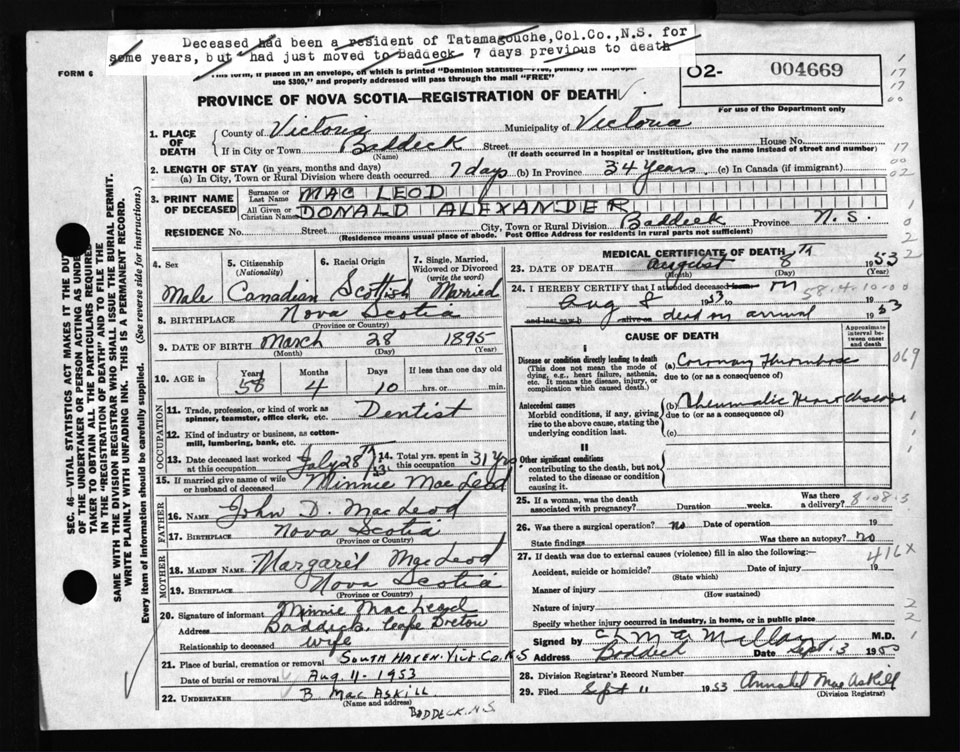 Deceased had been a resident of Tatamagouche, Col.Co., N.S. for
some years, but had just moved to Baddeck 7 days previous to death
FORM 6
This form, if placed in an envelope, on which is printed "Dominion Statistics—Free, penalty for improper
use $300," and properly addressed will pass through the mail "FREE"
O2- 004669
For use of the Department only
PROVINCE OF NOVA SCOTIA—REGISTRATION OF DEATH
1. PLACE OF DEATH { County of Victoria Municipality of Victoria
If in City or Town Baddeck Street House No.
(Name) (If death occurred in a hospital or institution, give the name instead of street and number)
2. LENGTH OF STAY (in years, months and days)
(a) In City, Town or Rural Division where death occurred 7 days (b) In Province 34 Years (c) In Canada (if immigrant)
3. PRINT NAME OF DECEASED { Surname or Last Name MAC LEOD
All Given or Christian Names DONALD ALEXANDER
RESIDENCE No. Street City, Town or Rural Division Baddeck Province N.S.
(Residence means usual place of abode. Post Office Address for residents in rural parts not sufficient)
4. Sex Male
5. Citizenship (Nationality) Canadian
6. Racial Origin Scottish
7. Single, Married, Widowed or Divorced (write the word) Married
8. BIRTHPLACE Nova Scotia
(Province or Country)
9. DATE OF BIRTH March 28 1895
(Month) (Day) (Year)
10. AGE in Years 58 Months 4 Days 10 If less than one day old
hrs. or min.
OCCUPATION
11. Trade, profession, or kind of work as spinner, teamster, office clerk, etc. Dentist
12. Kind of industry or business, as cotton-mill, lumbering, bank, etc.
13. Date deceased last worked at this occupation July 28 /53
14. Total yrs. spent in this occupation 31 yrs
15. If married give name of wife or husband of deceased Minnie MacLeod
FATHER
16. NAME John D. MacLeod
17. BIRTHPLACE Nova Scotia
(Province or Country)
MOTHER
18. MAIDEN NAME Margaret MacLeod
19. BIRTHPLACE Nova Scotia
(Province or Country)
20. Signature of informant Minnie MacLeod
Address Baddeck, Cape Breton
Relationship to deceased Wife
21. Place of burial, cremation or removal SOUTH HAVEN. Vict. Co. N.S
Date of burial or removal Aug. 11 - 1953
22. UNDERTAKER B. MacASKILL
(Name and address)
BADDECK. N.S
MEDICAL CERTIFICATE OF DEATH
23. DATE OF DEATH August 8th 1953
(Month) (Day) (Year)
24. I HEREBY CERTIFY that I attended deceased from
Aug 8 1953 to 19
and last saw h alive on dead on arrival 1953
58.4.10.00
CAUSE OF DEATH
Approximate interval between onset and death
I
Disease or condition directly leading to death
(This does not mean the mode of dying, e.g., heart failure, asthenia, etc. It means the disease, injury, or complication which caused death.)
(a) Coronary Thrombosis
due to (or as a consequence of)
Antecedent causes
Morbid conditions, if any, giving rise to the above cause, stating the underlying condition last.
(b) Rheumatic Heart disease
due to (or as a consequence of)
(c)
II
Other significant conditions
contributing to the death, but not related to the disease or condition causing it.
25. If a woman, was the death associated with pregnancy? Duration weeks. Was there a delivery?
8.08.3
26. Was there a surgical operation? no Date of operation 19
State findings Was there an autopsy? no
27. If death was due to external causes (violence) fill in also the following:—
416X
Accident, suicide or homicide? Date of injury 19
(State which)
Manner of injury
(How sustained)
Nature of injury
Specify whether injury occurred in industry, in home, or in public place
Signed by C L MacMillan M.D.
Address Baddeck Date Sept. 3 1953
28. Division Registrar's Record Number
29. Filed Sept 11 1953 Annabel MacAskill
(Division Registrar)
SEC. 46—VITAL STATISTICS ACT MAKES IT THE DUTY
OF THE UNDERTAKER OR PERSON ACTING AS UNDER-
TAKER TO OBTAIN ALL THE PARTICULARS REQUIRED
IN THE "REGISTRATION OF DEATH" AND TO FILE THE
SAME WITH THE DIVISION REGISTRAR WHO SHALL ISSUE THE BURIAL PERMIT.
WRITE PLAINLY WITH UNFADING INK. THIS IS A PERMANENT RECORD.
Every item of information should be carefully supplied. (See reverse side for instructions.)
1
17
17
00
17
00
02
1
0
2
2
069
1
1
1
2
2
1